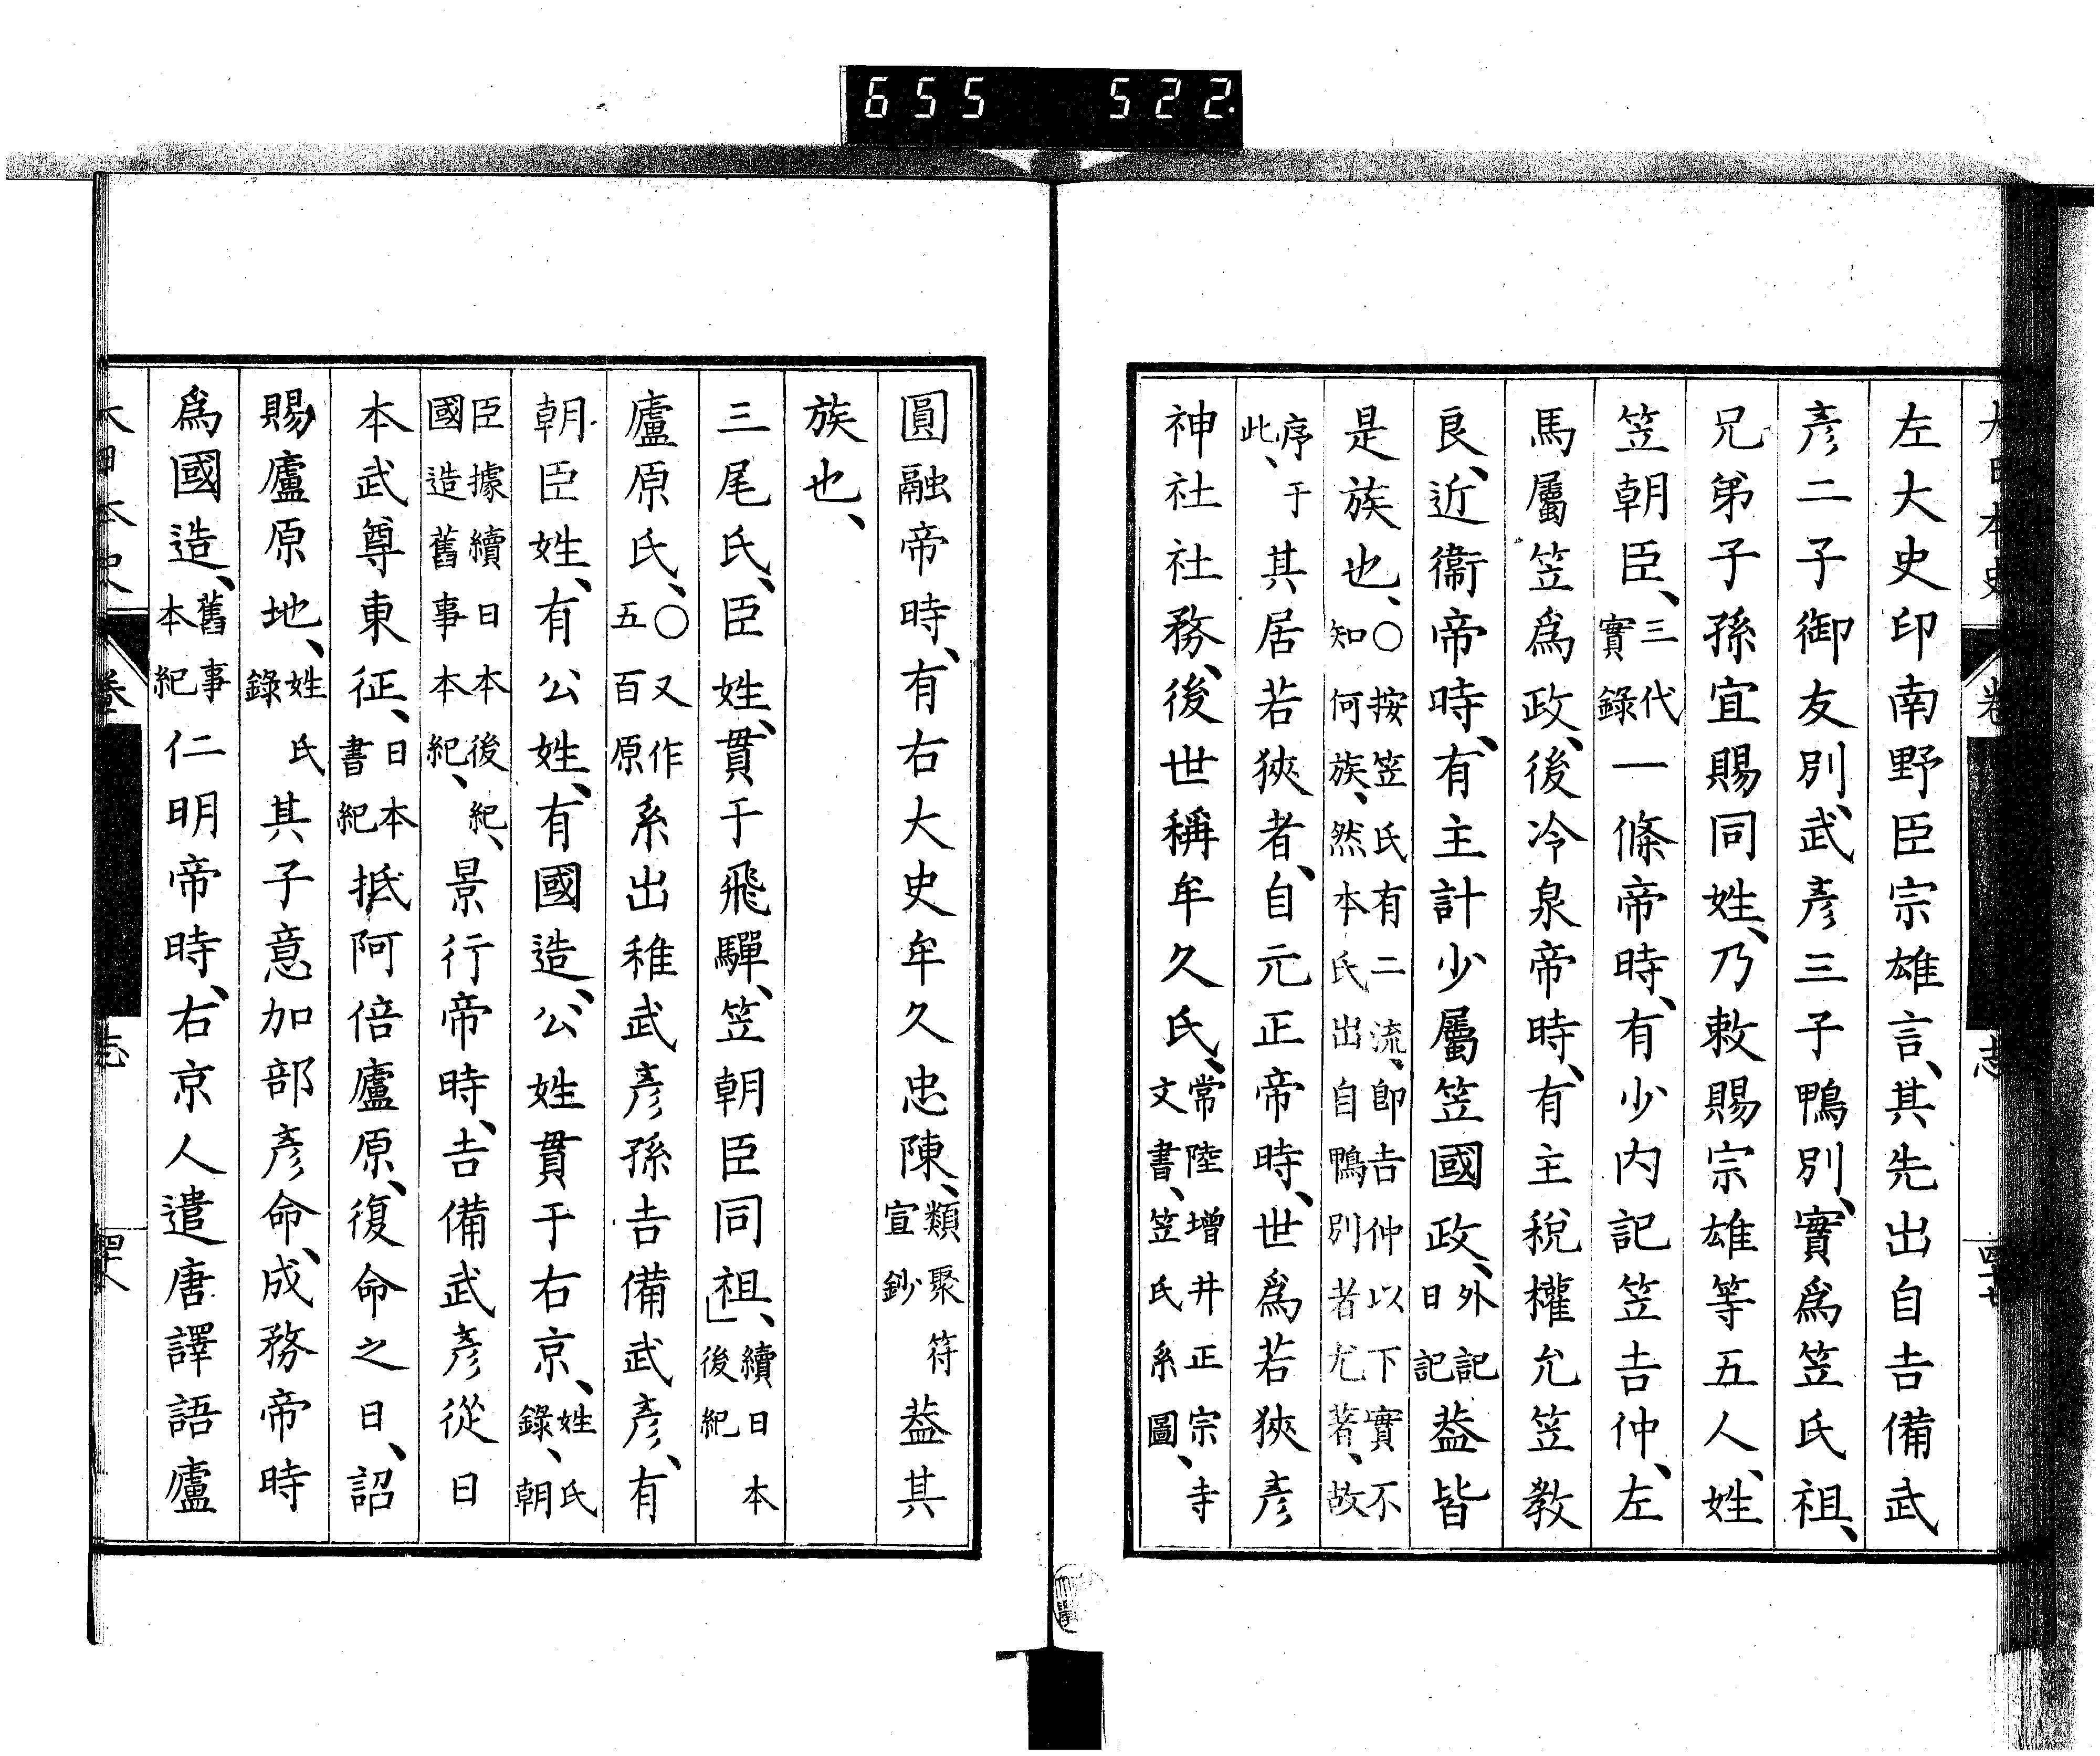 655 522
左大史印南野臣宗雄言、其先出自吉備武
彥二子御友別、武彥三子鴨別、實爲笠氏祖、
兄弟子孫宜賜同姓、乃敕賜宗雄等五人、姓
笠朝臣、三代實錄一條帝時、有少内記笠吉仲、左
馬屬笠爲政、後冷泉帝時、有主稅權允笠敎
良、近衞帝時、有主計少屬笠國政、外記日記葢皆
是族也、○按笠氏有二流、卽吉仲以下實不知何族、然本氏出自鴨別者尤著、故
序于此、其居若狹者、自元正帝時、世爲若狹彥
神社社務、後世稱牟久氏、常陸增井正宗寺文書、笠氏系圖、
圓融帝時、有右大史牟久忠陳、類聚符宣鈔葢其
族也、
三尾氏、臣姓、貫于飛驒、笠朝臣同祖、」續日本後紀
廬原氏、○又作五百原系出稚武彥孫吉備武彥、有
朝臣姓、有公姓、有國造、公姓貫于右京、姓氏錄、朝
臣據續日本後紀、國造舊事本紀、景行帝時、吉備武彥從日
本武尊東征、日本書紀抵阿倍廬原、復命之日、詔
賜廬原地、姓氏錄其子意加部彥命、成務帝時
爲國造、舊事本紀仁明帝時、右京人遣唐譯語廬